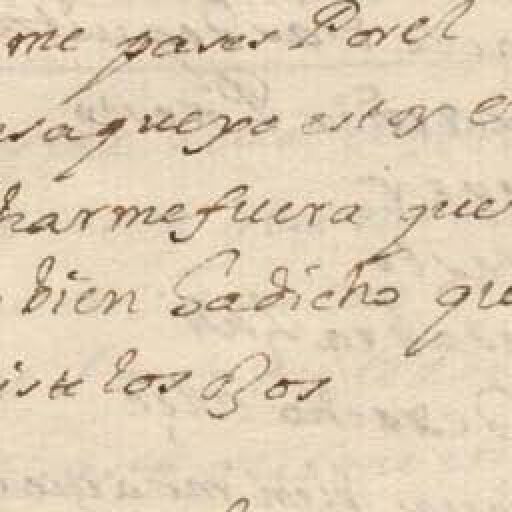 me pases Porel
saqueyo estoy e
harmefuera que
bien Sadicho qu
iste los Bos